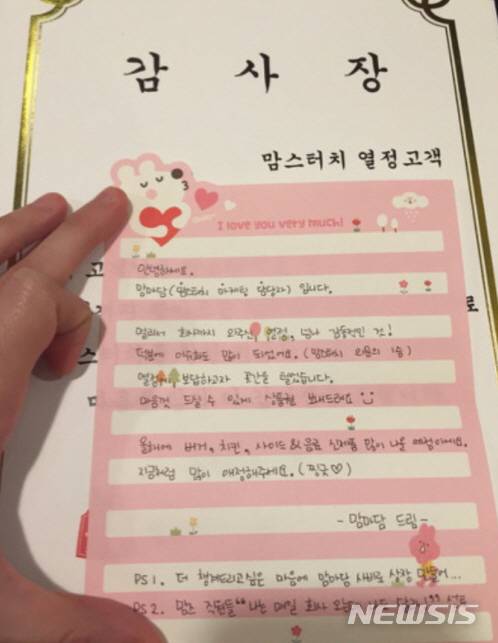 감 사 장
맘스터치 열정고객
I love you very much!
안녕하세요.
맘마담(맘스터치 마케팅 담당자) 입니다.
멀리서 회사까지 와주신 열정, 넘나 감동적인 것!
덕분에 이슈화도 많이 되었어요. (맘스터치 의문의 1승)
열정에 보답하고자 곳간을 털었습니다.
마음껏 드실 수 있게 상품권 보내드려요
올해에 버거, 치킨, 사이드&음료 신제품 많이 나올 예정이에요.
지금처럼 많이 애정해주세요. (찡긋♡)
-맘마담 드림-
PS 1. 더 챙겨드리고싶은 마음에 맘마담 사비로 상장 만들어...
PS 2. 맘스 직원들 "나는 매일 회사
고
스
로
NEWSIS